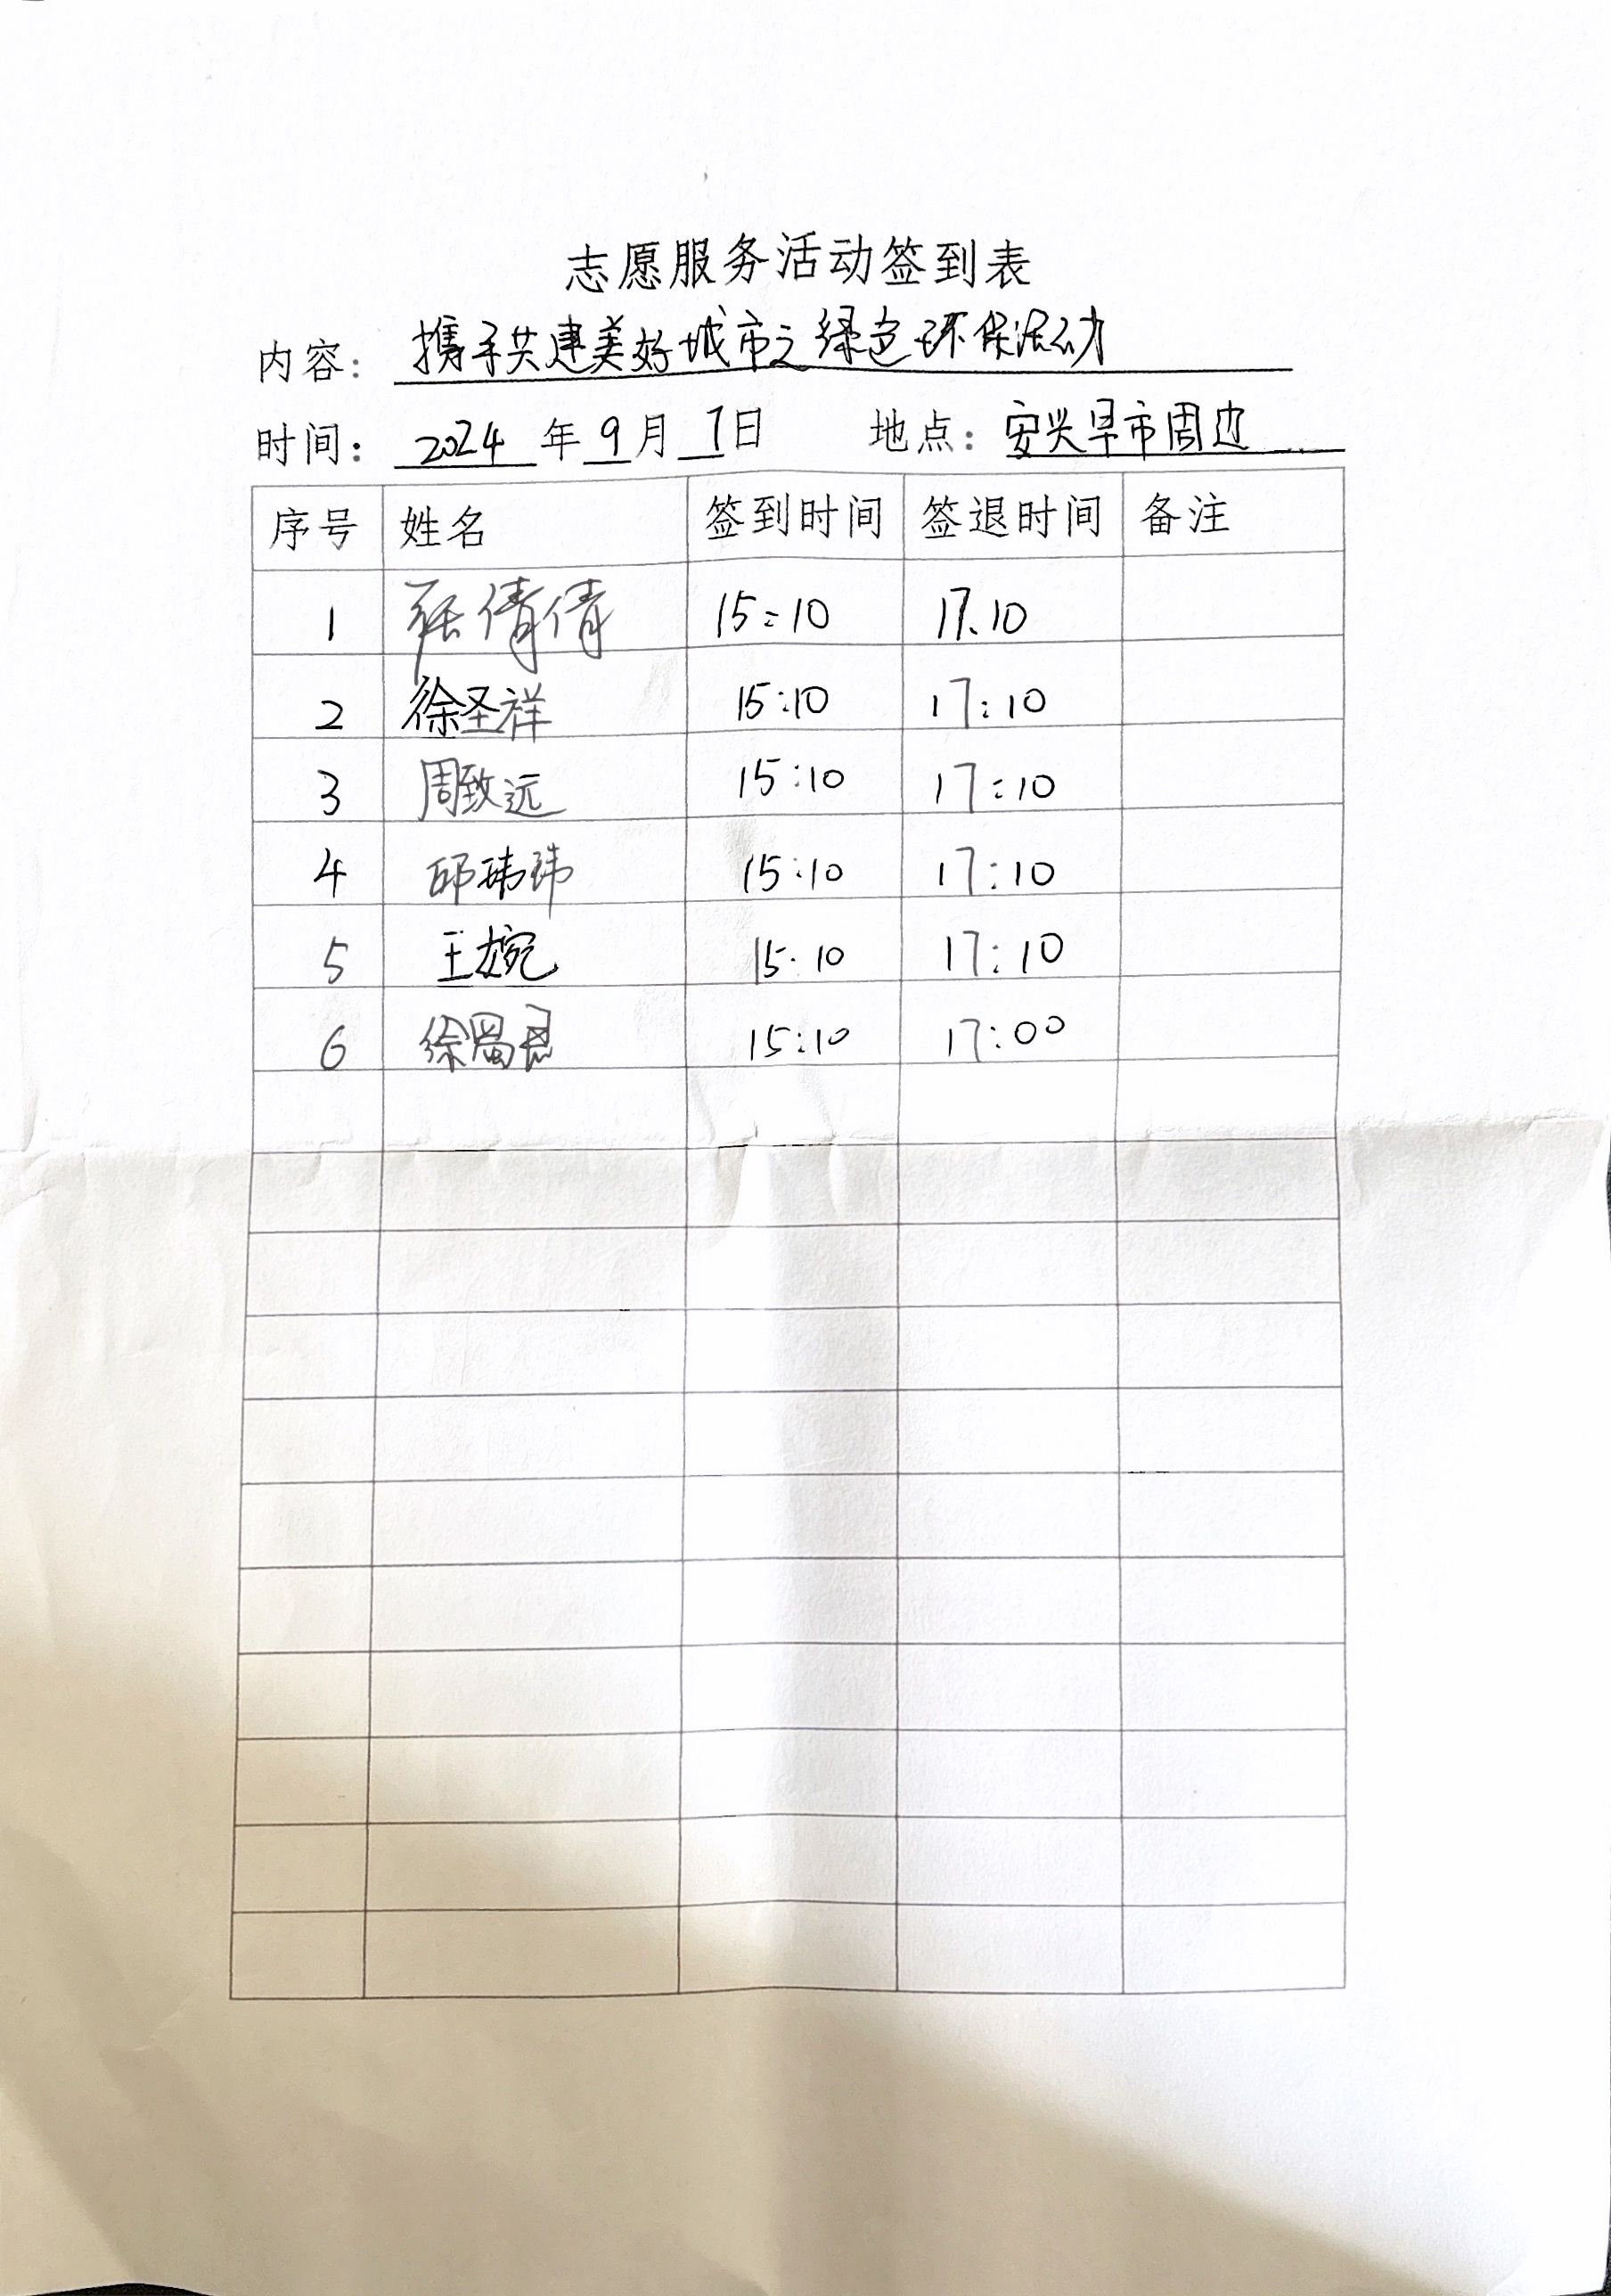 志愿服务活动签到表
内容：携手共建美好城市之绿色环保活动
时间：2024年9月7日 地点：安兴早市周边
序号 姓名 签到时间 签退时间 备注
1 倩倩 15:10 17.10
2 徐圣祥 15:10 17:10
3 周致远 15:10 17:10
4 邱玮玮 15:10 17:10
5 王婉 15:10 17:10
6 徐 15:10 17:00